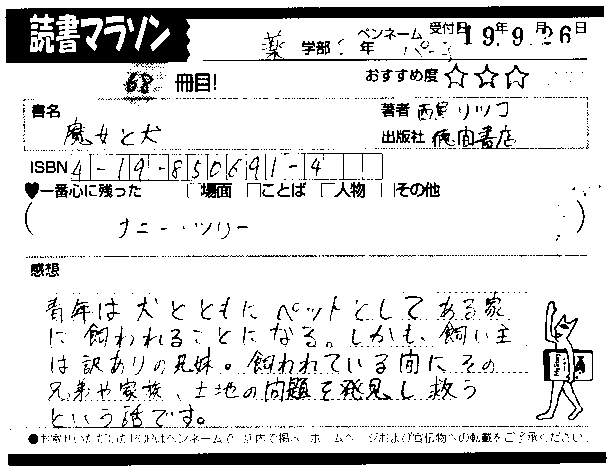 読書マラソン
薬 学部 年 ペンネーム 受付日 19年9月26日
68 冊目! おすすめ度 ☆☆☆
書名 魔女と犬
著者 西 リツコ
出版社 徳間書店
ISBN 4-19-850691-4
♥一番心に残った □場面 □ことば □人物 □その他
( )
感想
青年は犬とともにペットとしてある家
に飼われることになる。しかも、飼い主
は訳ありの兄妹。飼われている間にその
兄弟や家族、土地の問題を発見し救う
という話です。